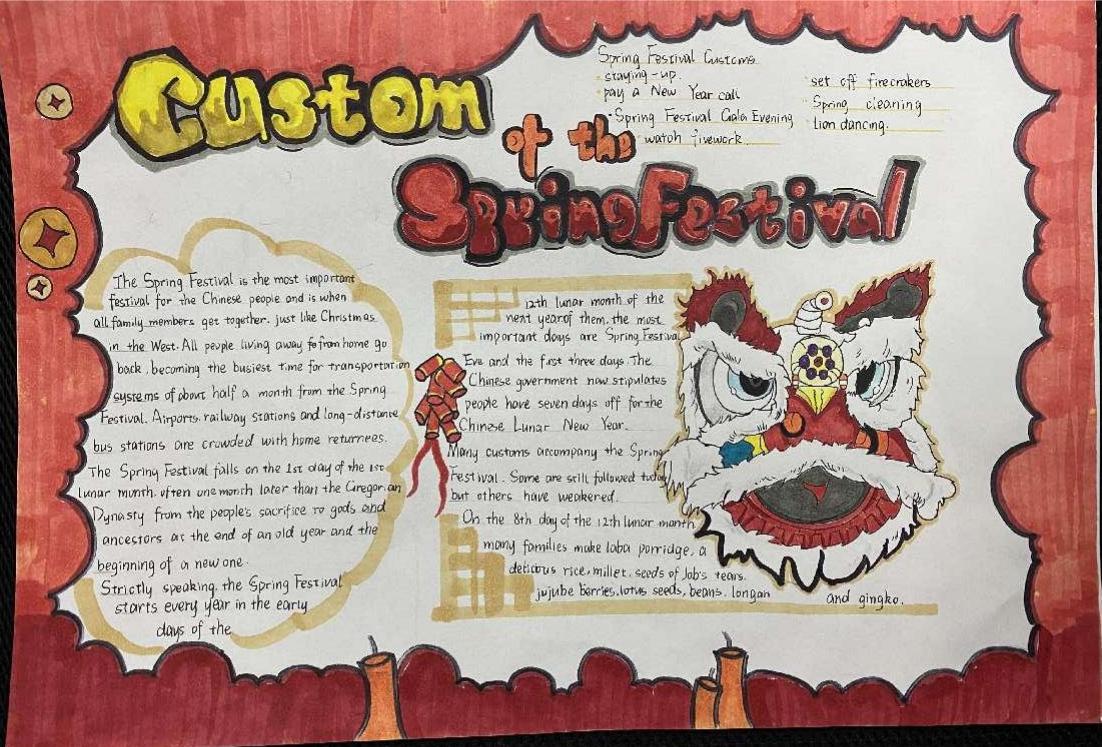 Custom
of the
Spring Festival
Spring Festival Customs
staying-up.
pay a New Year call
Spring Festival Gala Evening
watch firework
set off firecrakers
Spring cleaning
lion dancing.
The Spring Festival is the most important
festival for the Chinese people and is when
all family members get together. just like Christmas
in the West. All people living away from home go
back, becoming the busiest time for transportation
systems of about half a month from the Spring
Festival. Airports, railway stations and long-distance
bus stations are crowded with home returnees.
The Spring Festival falls on the 1st day of the 1st
lunar month, often one month later than the Gregorian
Dynasty from the people's sacrifice to gods and
ancestors at the end of an old year and the
beginning of a new one.
Strictly speaking, the Spring Festival
starts every year in the early
days of the
12th lunar month of the
next year of them, the most
important days are Spring Festival
Eve and the first three days. The
Chinese government now stipulates
people have seven days off for the
Chinese Lunar New Year.
Many customs accompany the Spring
Festival. Some are still followed today
but others have weakened.
On the 8th day of the 12th lunar month
many families make laba porridge, a
delicious rice, millet, seeds of Job's tears.
jujube berries, lotus seeds, beans, longan and gingko.